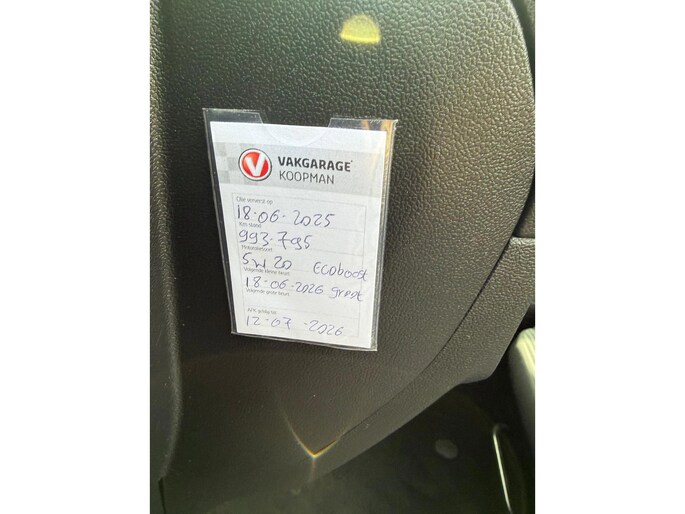 V VAKGARAGE
KOOPMAN
Olie ververst op
18-06-2025
Km-stand
993-795
Motoroliesoort
5W20 Ecoboost
Volgende kleine beurt
18-06-2026 groot
Volgende grote beurt
APK geldig tot
12-07-2026